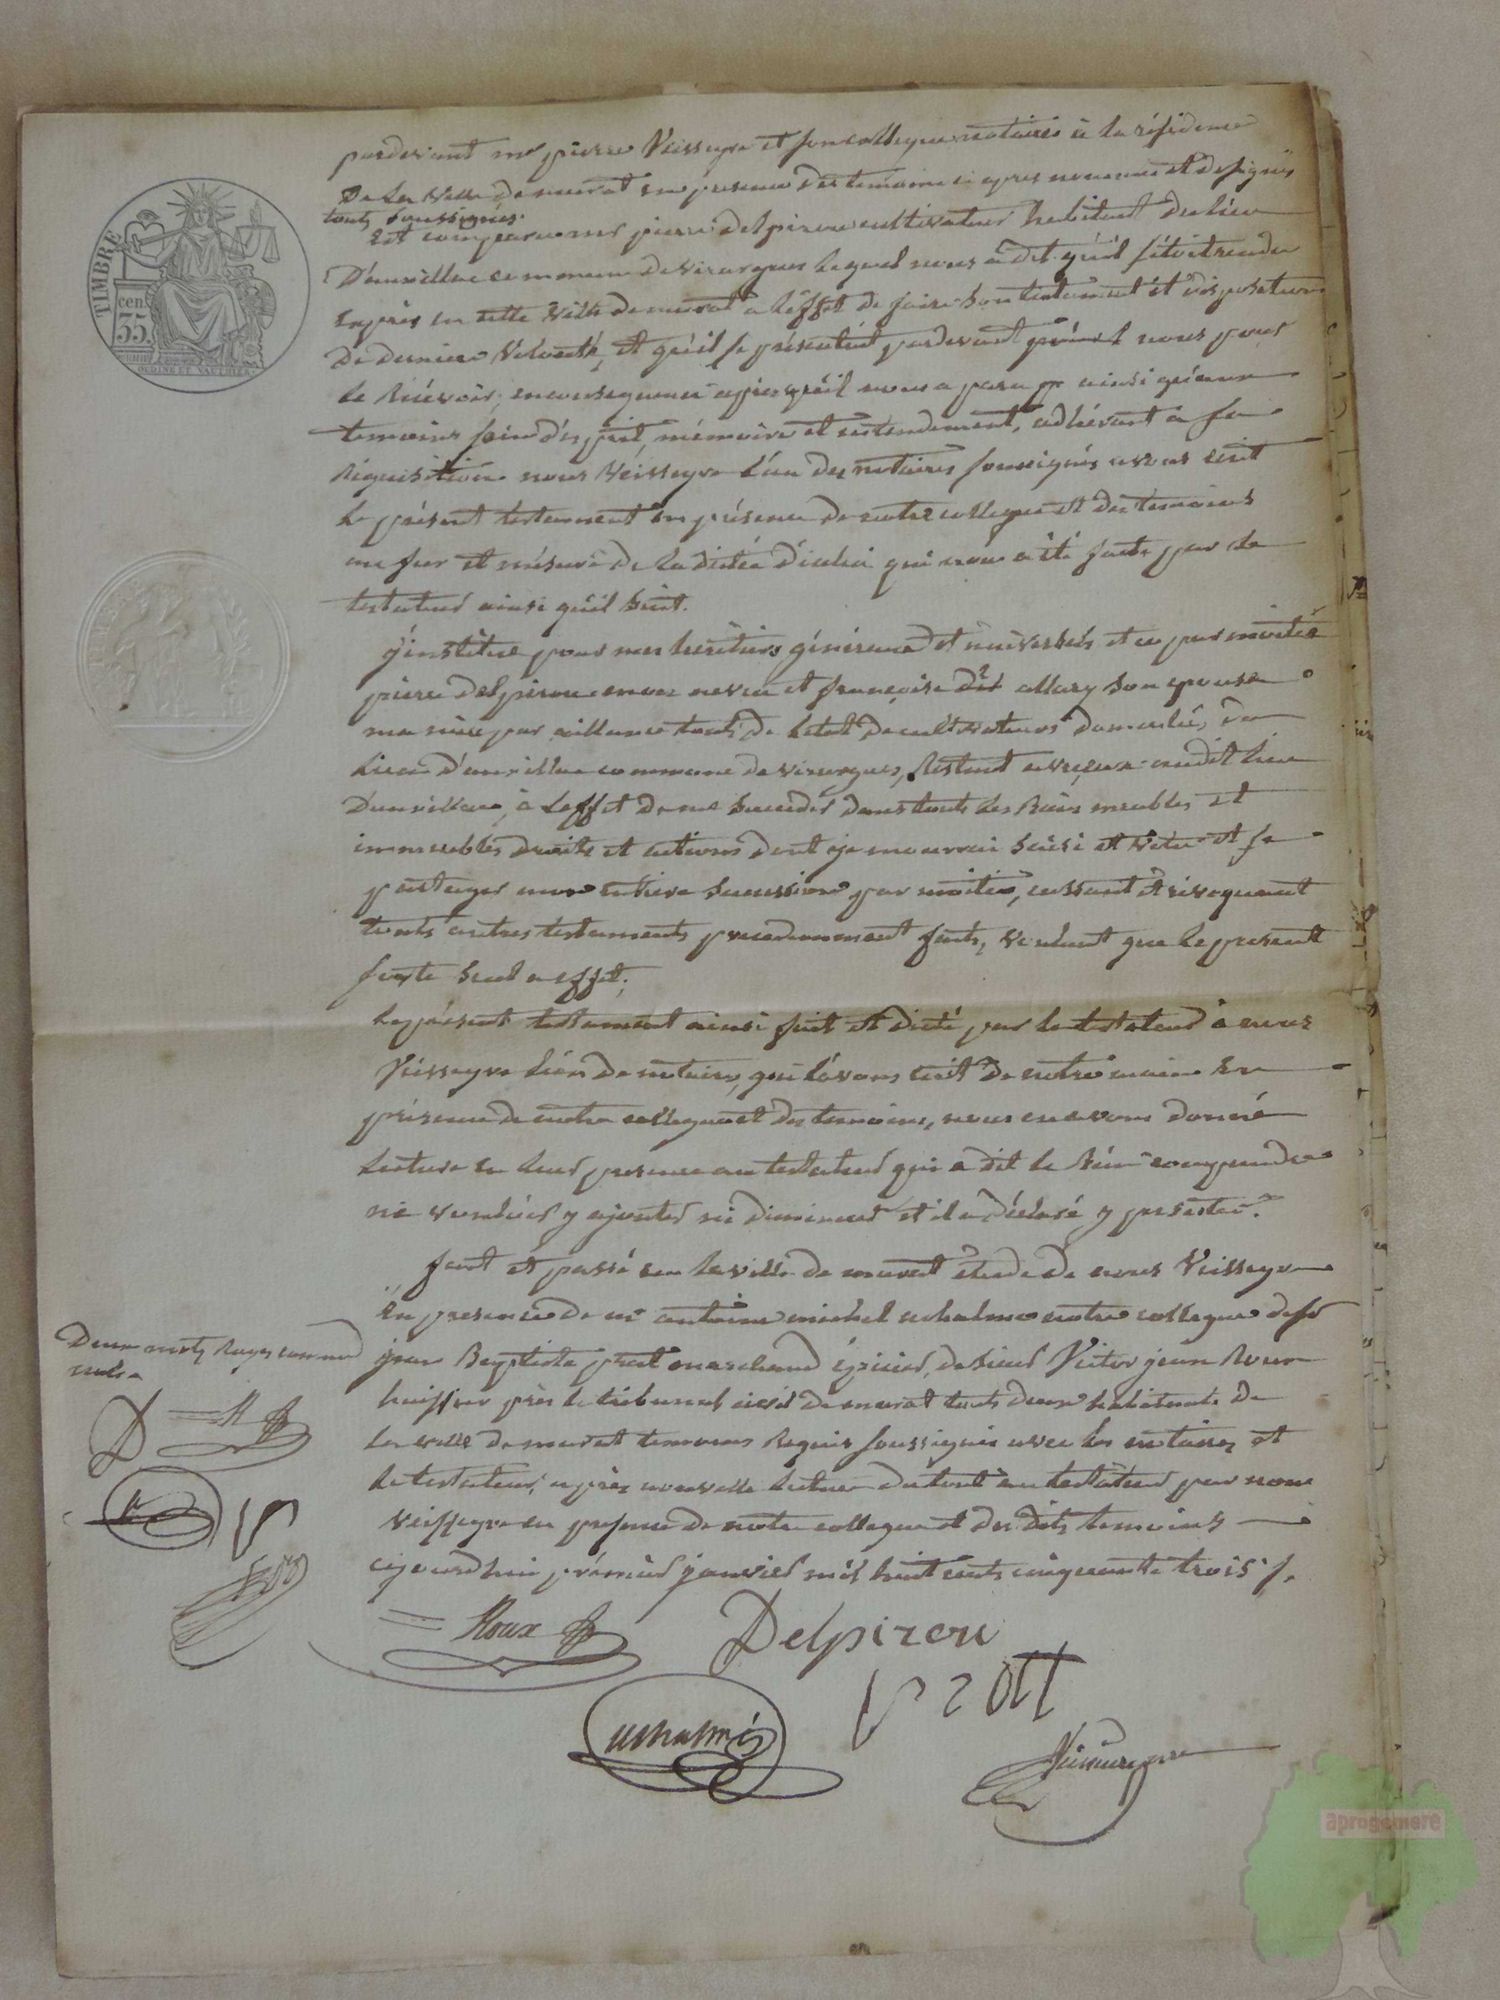 TIMBRE
cen
35.
OUDINÉ ET VAUTHIER.
pardevant me pierre Veisseyre et son collegue notaires à la résidence
De la Ville de murat en presence des temoins ci apres nommés et désignés
touts soussignés.
Est comparu mr pierre delpirou cultivateur habitant du lieu
D'auxillac commune de virargues lequel nous a dit qu'il s'étoit rendu
exprès en cette Ville de murat a l'éffet de faire son testament et disposition
De derniere Volonté, et qu'il se présentoit pardevant nous pour
le Recevoir; en consequence apres qu'il nous a paru ainsi qu'aux
temoins sain d'esprit, mémoire et entendement, adherant a sa
Réquisition nous Veisseyre l'un des notaires soussignés avons écrit
le présent testament en présence de notre collegue et des temoins
au fur et mésure de la dictée d'icelui qui nous a été faite par le
testateur ainsi qu'il suit.
j'institue pour mes heritiers généraux et universels et ce par moitié
pierre delpirou mon neveu et françoise allary son epouse
ma niece par alliance touts de l'etat de cultivateurs domiciliés du
lieu d'auxillac commune de virargues, Restant avec eux audit lieu
D'auxillac, à l'effet de me succeder dans touts les Biens meubles et
immeubles droits et actions dont je mourrai saisi et vetu et se
partager mon entiere succession par moitié, cassant et révoquant
touts autres testaments precedemment faits, voulant que le present
sorte seul a effet;
le présent testament ainsi fait et dicté par le testateur à nous
Veisseyre l'un de notaires, qui l'avons écrit de notre main en
présence de notre collegue et des temoins, nous en avons donné
lecture en leur presence au testateur qui a dit le Bien comprendre
ne vouloir y ajouter ni diminuer et il a déclaré y persister.
fait et passé en la ville de murat étude de nous Veisseyre
En presence de me antoine michel achalme notre collegue de sr
jean Baptiste prat marchand épicier, de sieur Victor jean Roux
huissier près le tribunal civil de murat touts deux habitants de
la ville de murat temoins Requis soussignés avec les notaires et
le testateur, après nouvelle lecture du tout au testateur par nous
Veisseyre en presence de notre collegue et des dits temoins
cejourdhui prémier janvier mil huit cents cinquante trois
Deux mots Rayés comme
nuls
D
R
Roux
Delpirou
Pratt
achalme
Veisseyre
aprogemere